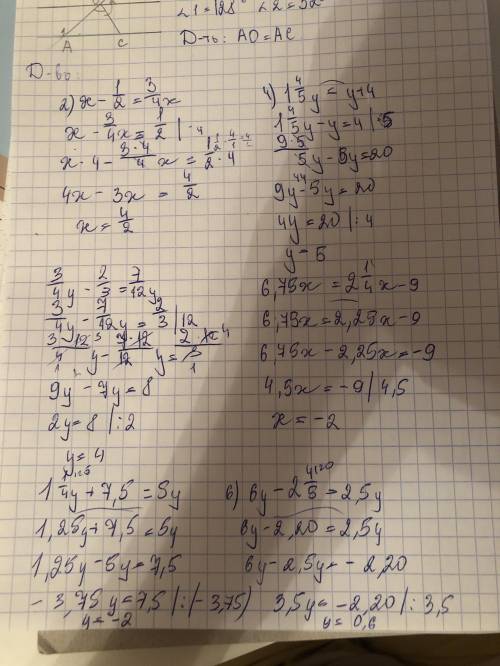 ∠1 = 128° ∠2 = 52°
A C
Д-ть: AO = AC
Д-во:
2) x - 1/2 = 3/4x
x - 3/4x = 1/2 | · 4
x · 4 - 3·4/4 x = 1/2 · 4
4x - 3x = 4/2
x = 4/2
4) 1 4/5y = y + 4
1 4/5y - y = 4 | · 5
9·5/5y - 5y = 20
9y - 5y = 20
4y = 20 | : 4
y = 5
3/4y - 2/3 = 7/12y
3/4y - 7/12y = 2/3 | 12
3·12/4 y - 7·12/12 y = 2·12/3
9y - 7y = 8
2y = 8 | : 2
y = 4
6,75x = 2 1/4x - 9
6,75x = 2,25x - 9
6,75x - 2,25x = -9
4,5x = -9 | 4,5
x = -2
1 1/4y + 7,5 = 5y
1,25y + 7,5 = 5y
1,25y - 5y = 7,5
- 3,75y = 7,5 | : (- 3,75)
y = -2
6) 6y - 2 4/5 = 2,5y
6y - 2,20 = 2,5y
6y - 2,5y = - 2,20
3,5y = -2,20 | : 3,5
y = 0,6